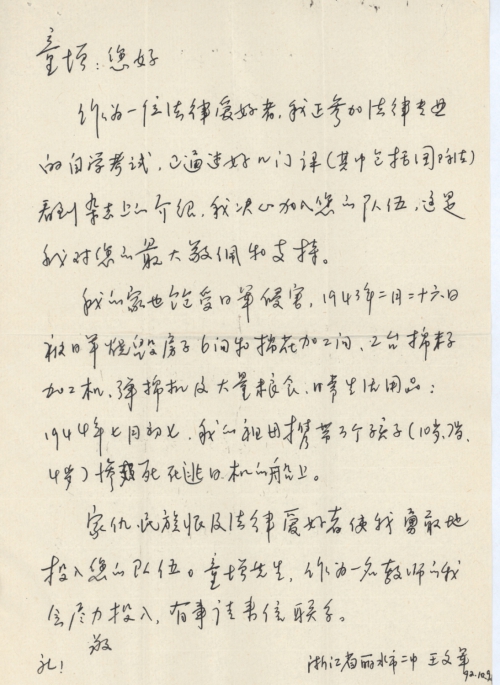 童增：您好
作为一位法律爱好者，我正参加法律专业
的自学考试，已通过好几门课（其中包括国际法）
看到杂志上的介绍，我决心加入您的队伍，这是
我对您的最大敬佩和支持。
我的家也饱受日军侵害，1943年二月二十六日
被日军烧毁房子6间和棉花加工间，2台棉籽
加工机，弹棉机及大量粮食、日常生活用品；
1944年七月初七，我的祖母携带3个孩子（10岁、7岁、
4岁）惨死在逃日机的船上。
家仇、民族恨及法律爱好者使我勇敢地
投入您的队伍。童增先生，作为一名教师的我
会尽力投入，有事请来信联系。
敬
礼！
浙江省丽水市二中 王文军
92.10.